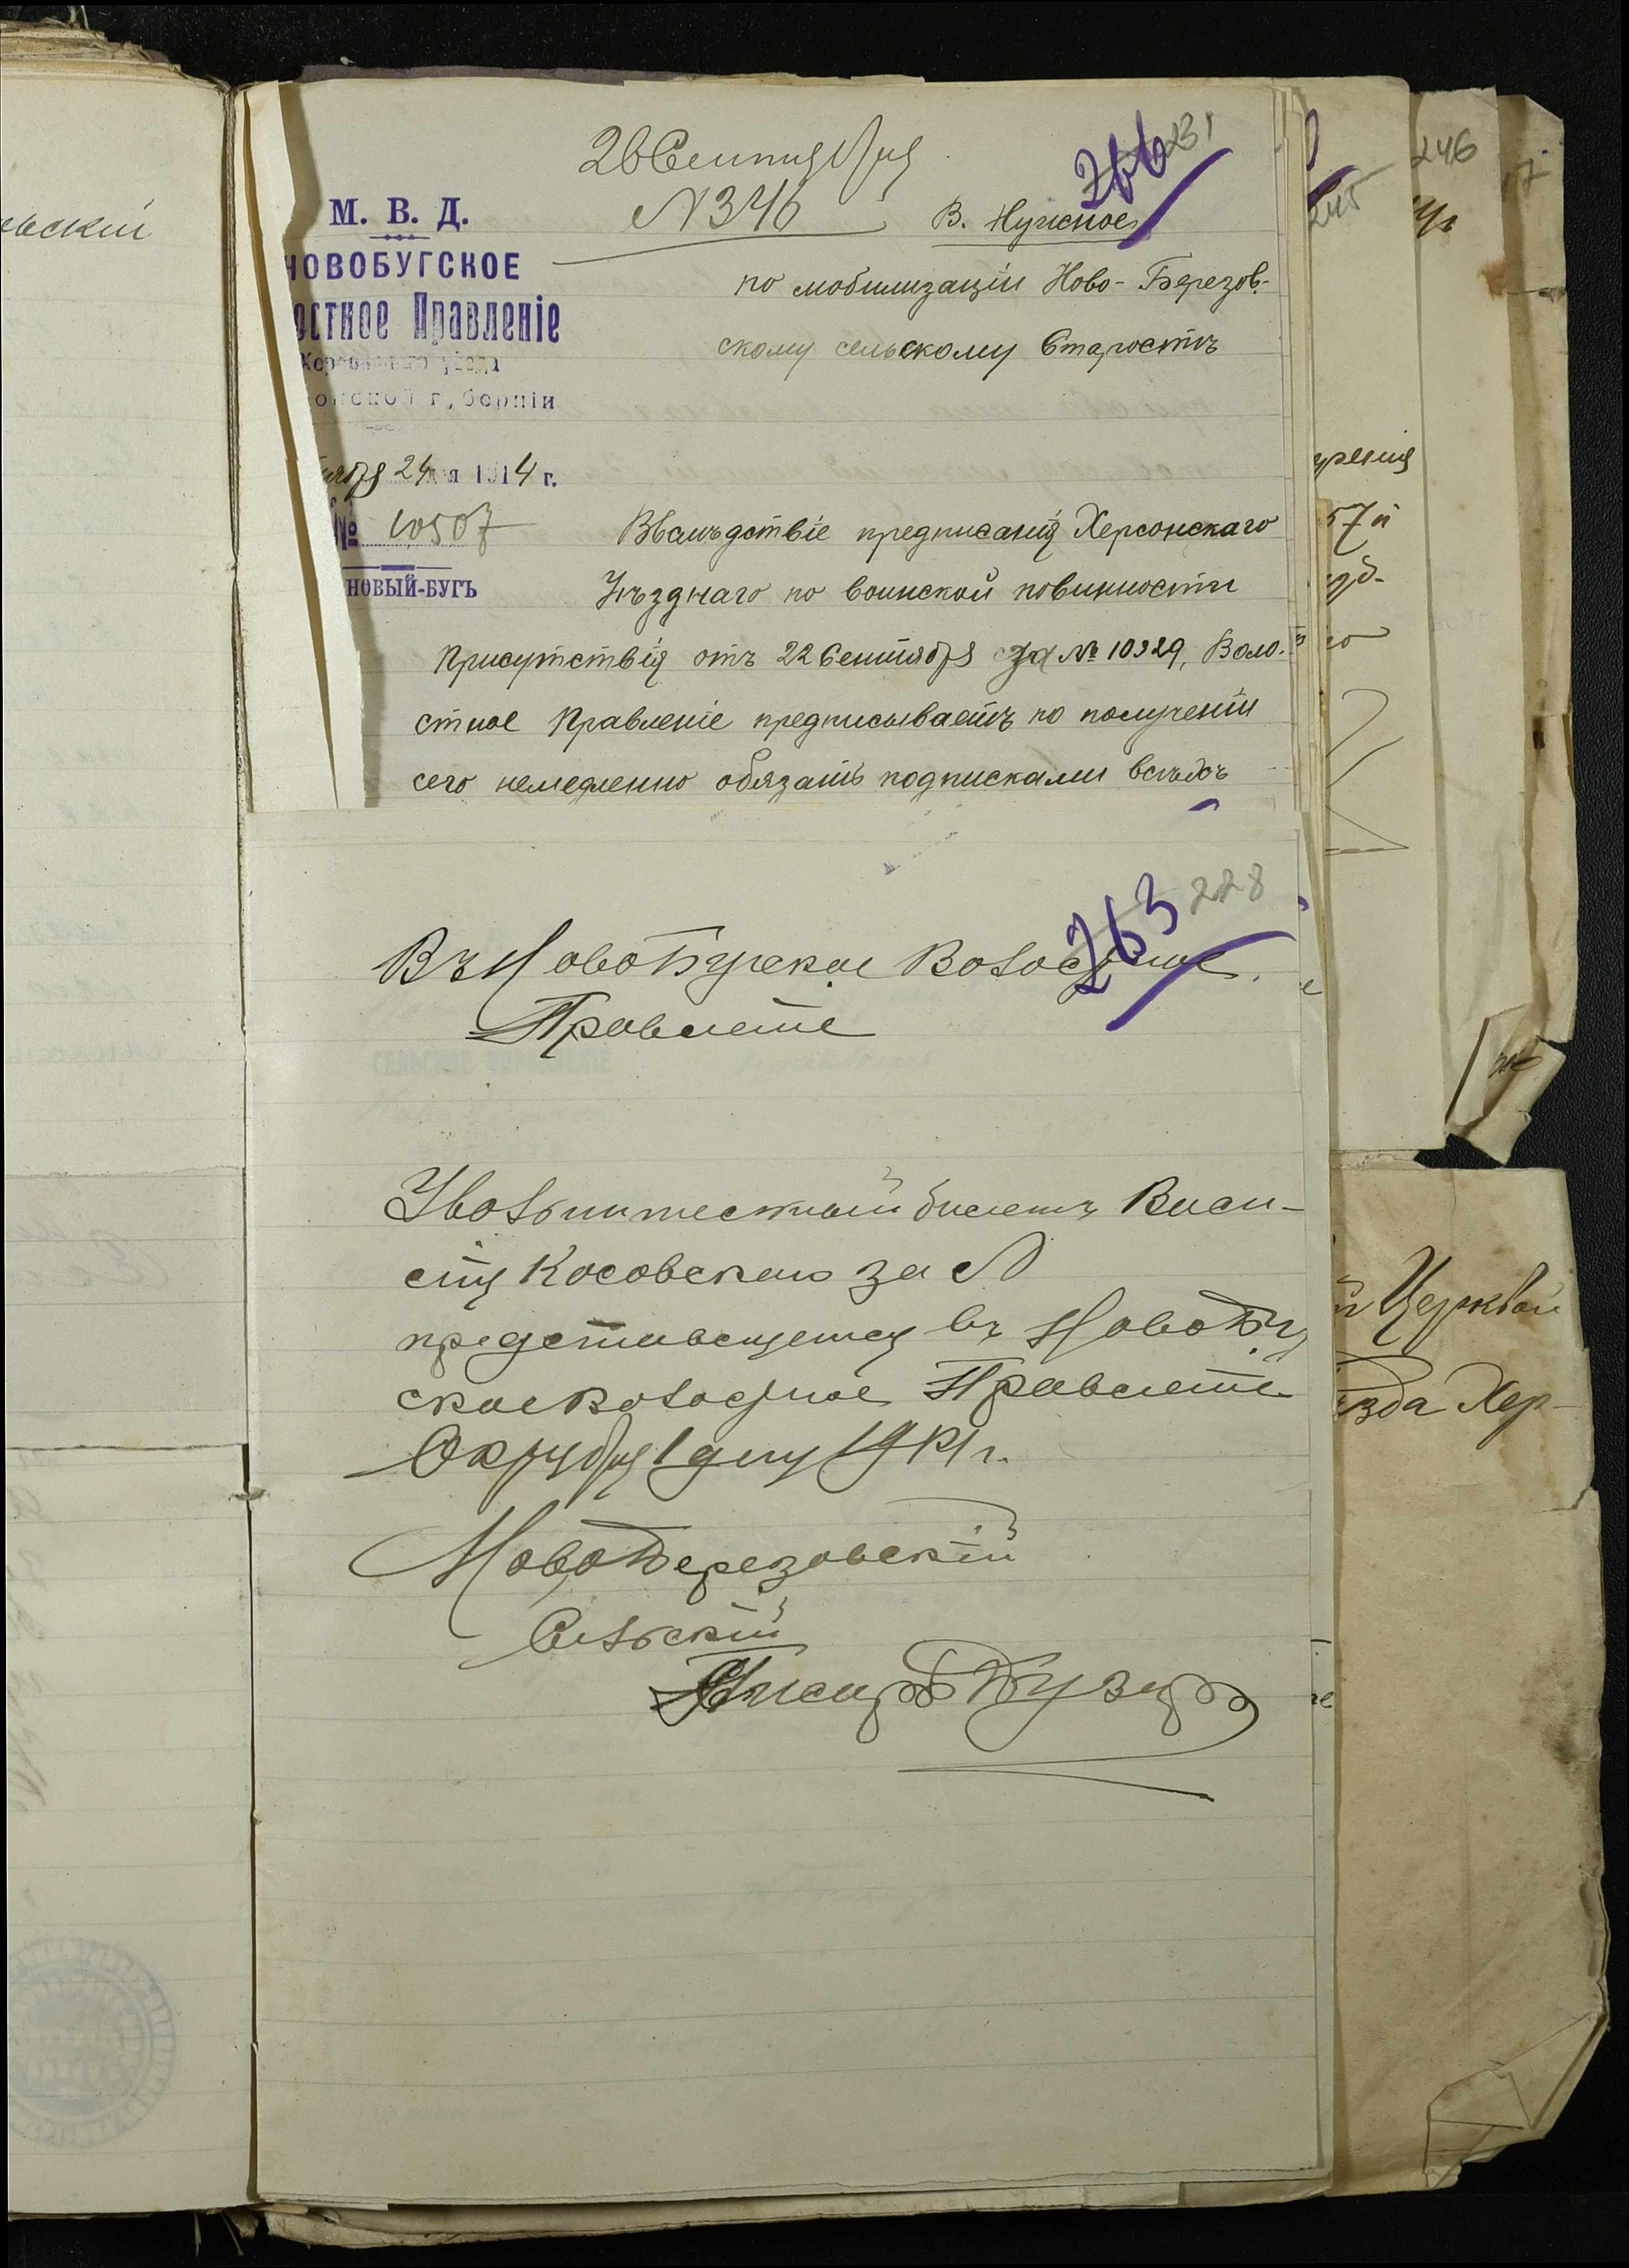 ьскій
26 Сентября
№ 346
266 231
В. Нужное
М. В. Д.
НОВОБУГСКОЕ
остное Правленіе
уѣзда
онской губерніи
24 дня 1914 г.
№ 10507
НОВЫЙ-БУГЪ
по мобилизаціи Ново-Березов-
скому сельскому Старостѣ
Вслѣдствіе предписанія Херсонскаго
Уѣзднаго по воинской повинности
Присутствія отъ 22 Сентября за № 10329, Воло-
стное Правленіе предписываетъ по полученіи
сего немедленно обязать подписками всѣхъ
263 228
Въ НовоБугское Волостное
Правленіе
Увольнительный билетъ Виси-
Косовскаго за №
представляется въ НовоБуг
ское волостное Правленіе
Октября 1 дня 1914 г.
НовоБерезовскій
Сельскій
Писарь
246
245
57 й
Церквой
ѣзда Хер-